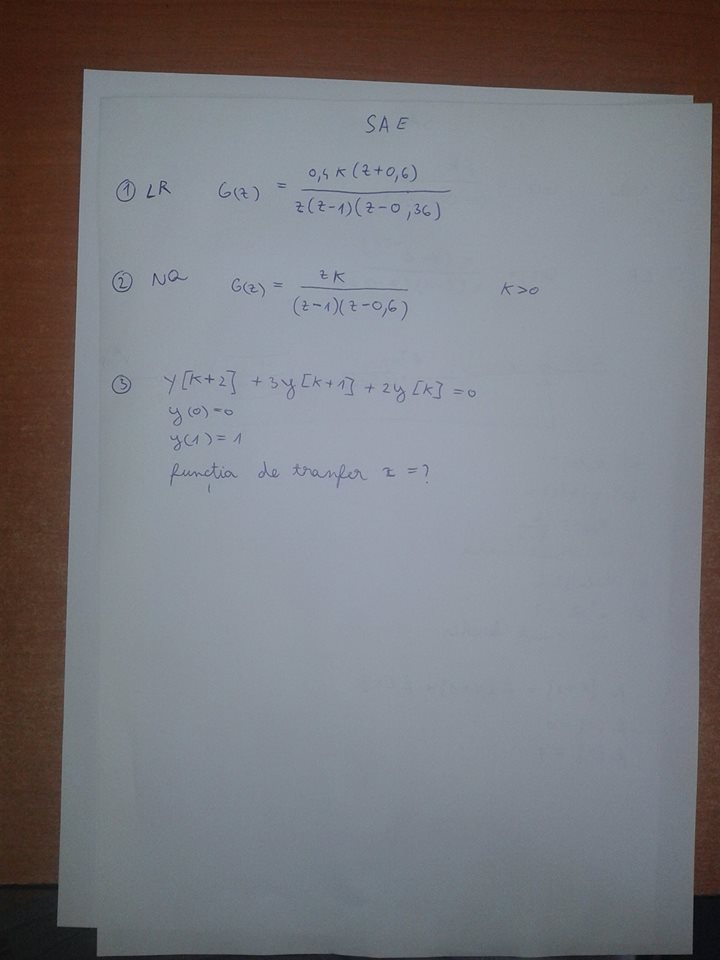 SAE
① LR G(z) = 0,4 K (z+0,6) / z(z-1)(z-0,36)
② NQ G(z) = zK / (z-1)(z-0,6) K>0
③ y[k+2] + 3y[k+1] + 2y[k] = 0
y(0)=0
y(1)=1
funcția de tranfer z = ?